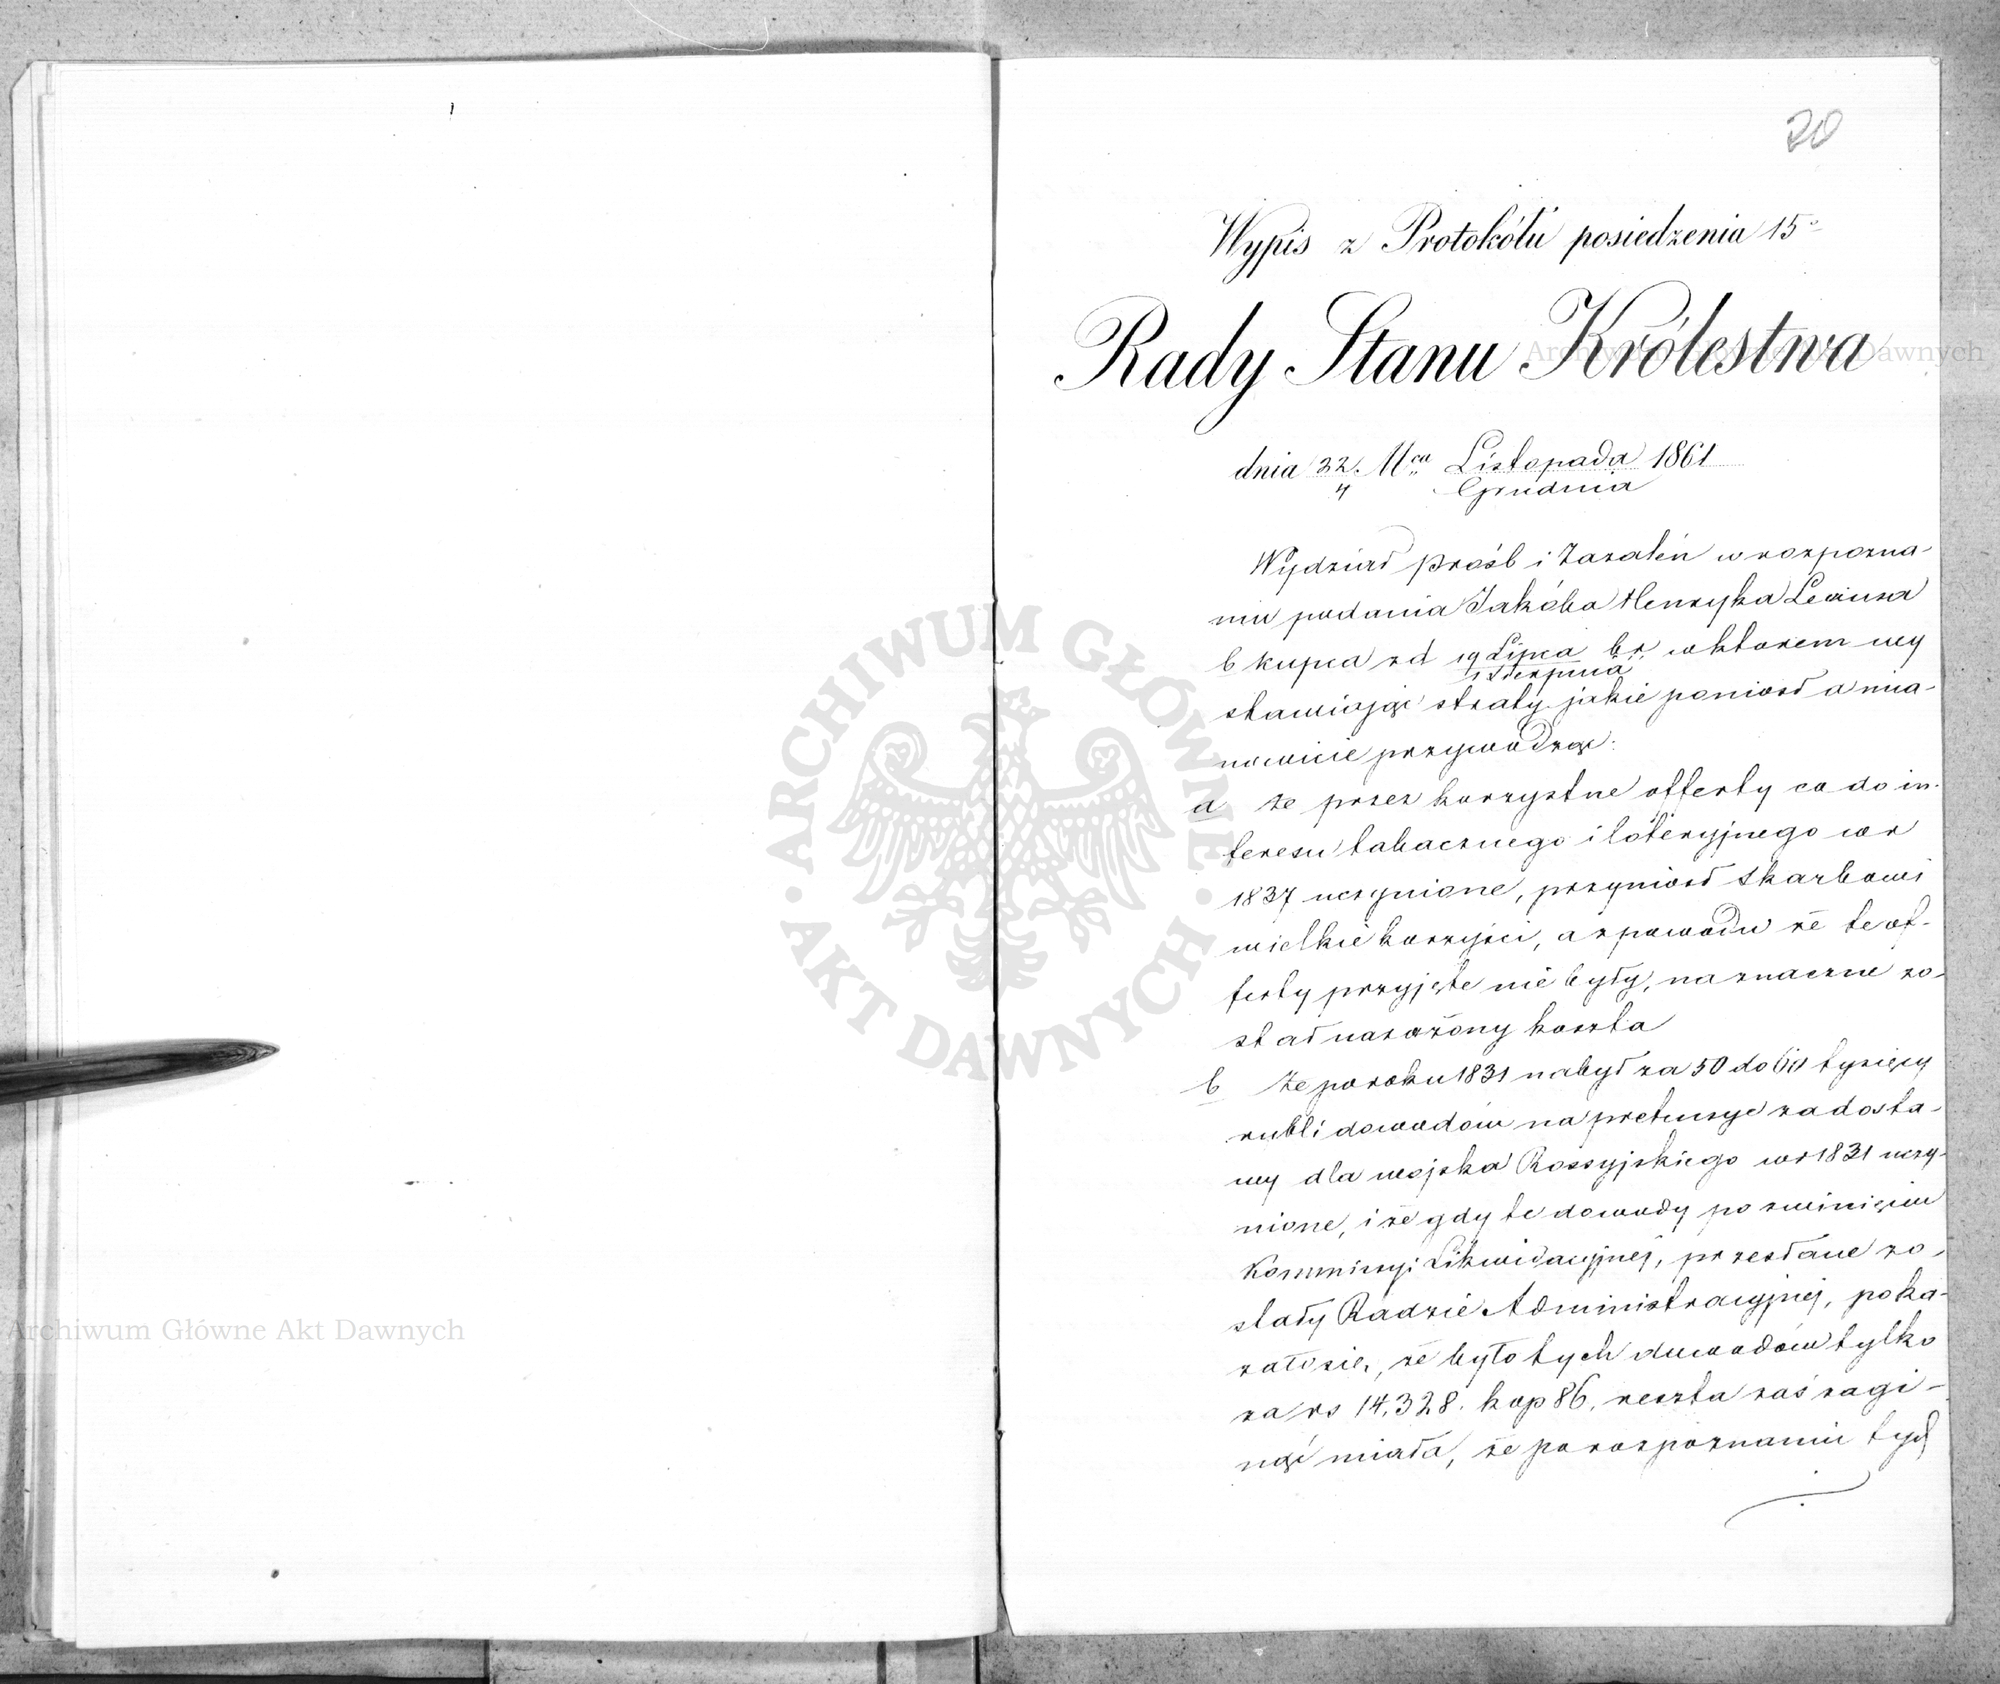 20
Wypis z Protokółu posiedzenia 15°
Rady Stanu Królestwa
dnia 22. Mca Listopada 1861
4 Grudnia
Wydział próśb i Zażaleń w rozpozna-
niu podania Jakóba Henryka Lewiusa
b kupca z d 19 Lipca b r w którem wy
1 Sierpnia
stawiając straty jakie poniosł a mia-
nowicie przywodząc:
a że przez korzystne offerty co do in-
teresu tabacznego i loteryjnego w r
1837 uczynione, przyniosł Skarbowi
wielkie korzyści, a z powodu że te of-
ferty przyjęte nie były, na znaczne zo-
stał narażony koszta
b że po roku 1831 nabył za 50 do 60 tysięcy
rubli dowodów na pretensye za dosta-
wy dla wojska Rossyjskiego w r 1831 uczy-
nione, i że gdy te dowody po zwinięciu
Kommisyi Likwidacyjnej, przesłane zo-
stały Radzie Administracyjnej, poka-
zało się, że było tych dowodów tylko
za rs 14,328. kop 86, reszta zaś zagi-
nąć miała, że po rozpoznaniu tych
ARCHIWUM GŁÓWNE · AKT DAWNYCH ·
Archiwum Główne Akt Dawnych
Archiwum Główne Akt Dawnych